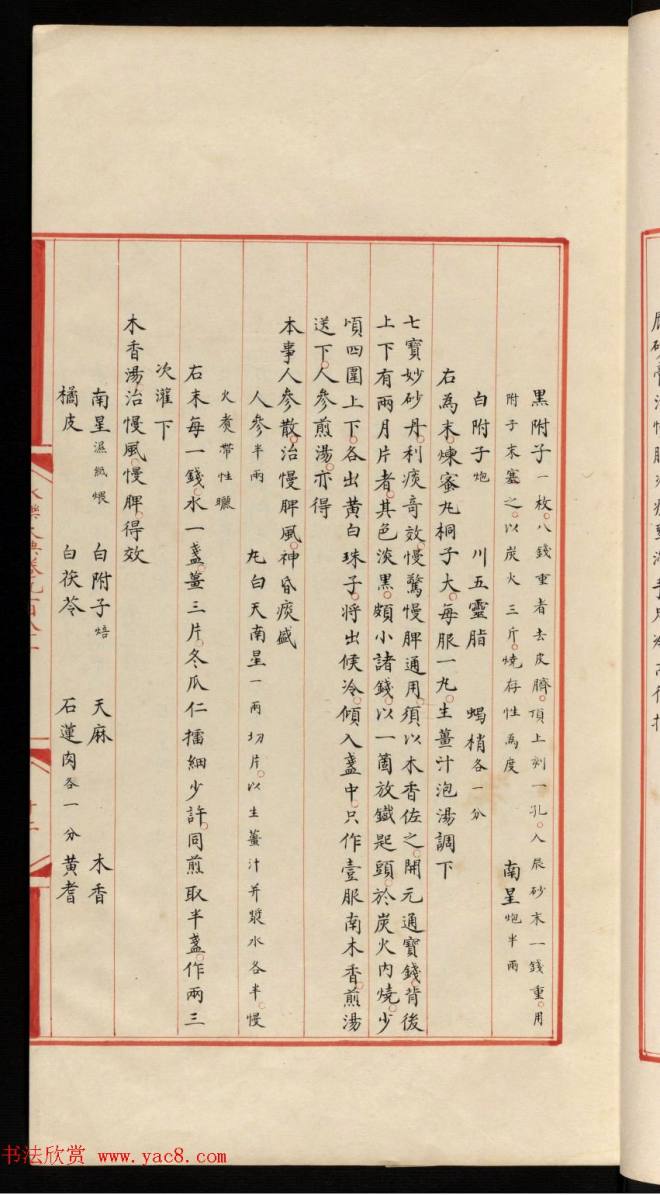 黑附子一枚。八錢重者去皮臍。頂上刻一孔。入辰砂末一錢重。用
附子末塞之。以炭火三斤。燒存性為度　南星炮半兩
白附子炮　川五靈脂　蝎梢各一分
右為末。煉蜜丸桐子大。每服一丸。生薑汁泡湯調下
七寶妙砂丹。利痰奇效。慢驚慢脾通用。須以木香佐之。開元通寶錢。背後
上下有兩月片者。其色淡黑。頗小諸錢。以一箇放鐵匙頭。於炭火內燒。少
頃四圍上下。各出黃白珠子。將出候冷。傾入盞中。只作壹服南木香。煎湯
送下。人參煎湯。亦得
本事人參散。治慢脾風。神昏痰盛
人參半兩　丸白天南星一兩切片。以生薑汁并漿水各半。慢
火煮帶性曬
右末每一錢。水一盞。薑三片。冬瓜仁擂細少許。同煎取半盞。作兩三
次灌下
木香湯。治慢風。慢脾。得效
南星濕紙煨　白附子焙　天麻　木香
橘皮　白茯苓　石蓮肉各一分　黃耆
书法欣赏 www.yac8.com